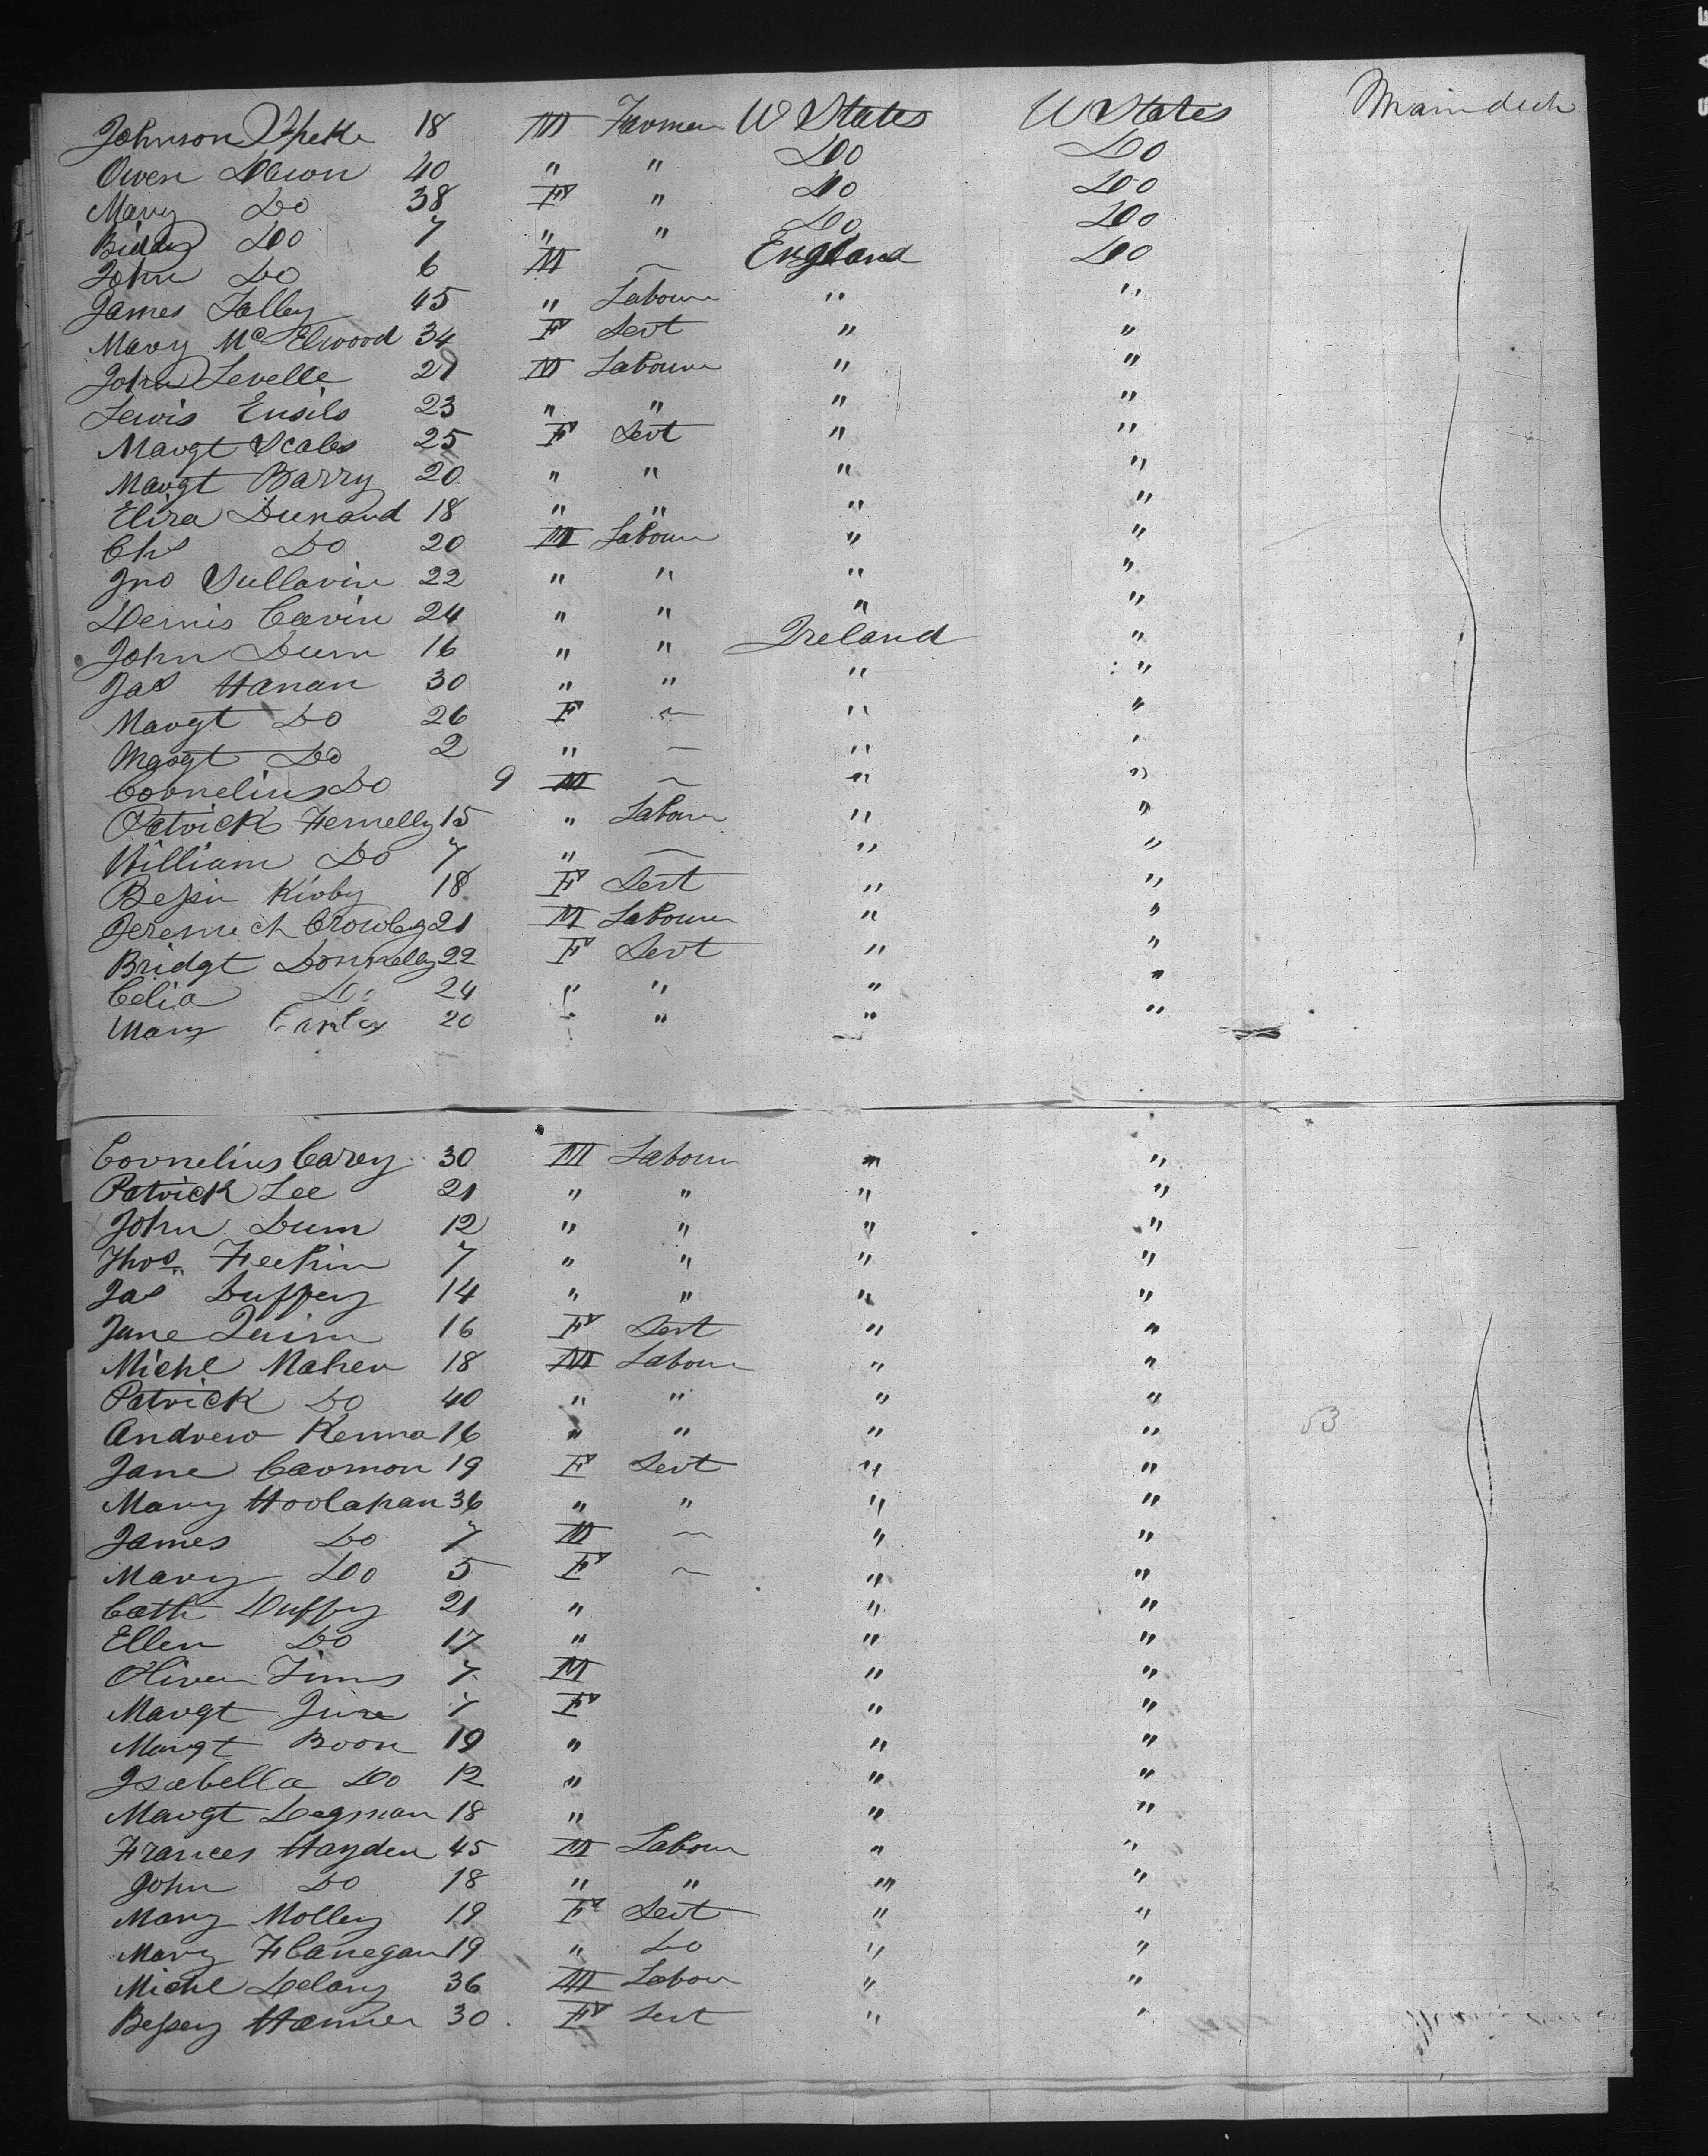 Johnson Speke 18 M Farmer U States U States Maindeck
Owen Dawn 40 " " Do Do
Mary Do 38 F " Do Do
Biddy Do 7 " " Do Do
John Do 6 M ~ England Do
James Talley 45 " Labour " "
Mary McElwood 34 F Servt " "
John Levelle 29 M Labourer " "
Lewis Ensils 23 " " " "
Margt Scales 25 F Servt " "
Margt Barry 20 " " " "
Eliza Dunand 18 " " " "
Chs Do 20 M Labour " "
Jno Sullavin 22 " " " "
Dennis Cavin 24 " " " "
John Dunn 16 " " Ireland "
Jas Hanan 30 " " " "
Margt Do 26 F ~ " "
Margt Do 2 " ~ " "
Cornelius Do 9 M ~ " "
Patrick Fennelly 15 " Labour " "
William Do 7 " ~ " "
Bessie Kirby 18 F Servt " "
Jeremieh Crowley 21 M Labourer " "
Bridgt Donnelly 22 F Servt " "
Celia Do 24 " " " "
Mary 20 " " " "
Cornelius Carey 30 M Labour " "
Patrick Lee 21 " " " "
John Dunn 12 " " " "
Thos Feehin 7 " " " "
Jas Duffey 14 " " " "
Jane Quinn 16 F Servt " "
Michl Maher 18 M Labour " "
Patrick Do 40 " " " "
Andrew Kenna 16 " " " " 53
Jane Carmon 19 F Servt " "
Mary Hoolahan 36 " " " "
James Do 7 M ~ " "
Mary Do 5 F ~ " "
Cath Duffy 21 " " "
Ellen Do 17 " " "
Oliver Tims 7 M " "
Margt 7 F " "
Margt Boon 19 " " "
Isabella Do 12 " " "
Margt Degman 18 " " "
Frances Hayden 45 M Labour " "
John Do 18 " " " "
Mary Molley 19 F Servt " "
Mary Flanegan 19 " Do " "
Michl Delany 36 M Labour " "
Bessey Hanner 30 F Servt " "